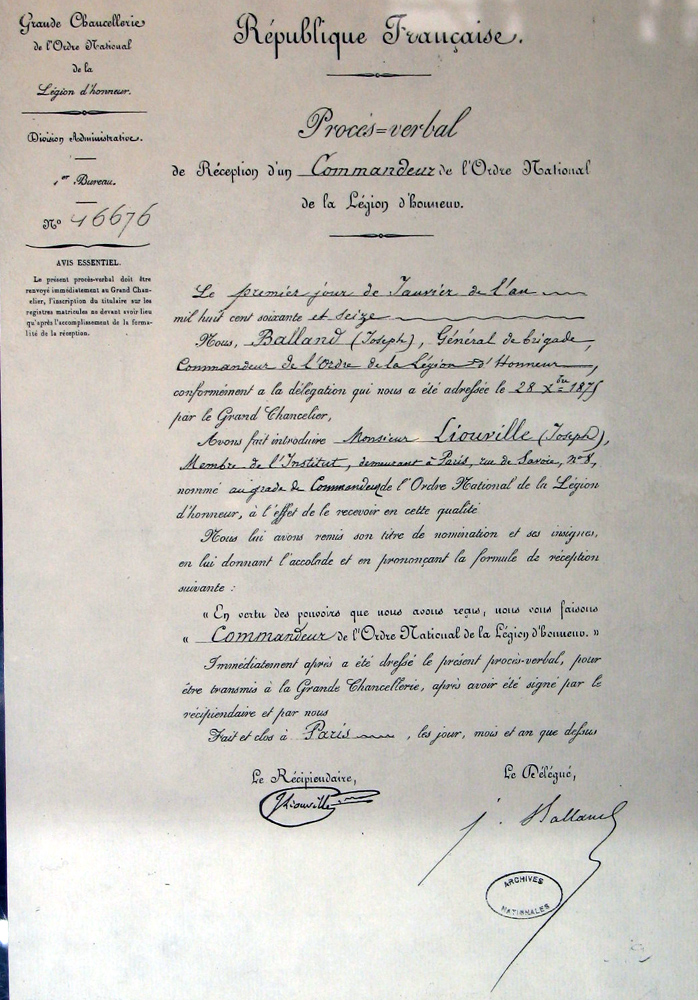 Grande Chancellerie
de l'Ordre National
de la
Légion d'honneur.
Division Administrative.
1er Bureau.
No 46676
AVIS ESSENTIEL.
Le présent procès-verbal doit être
renvoyé immédiatement au Grand Chan-
celier, l'inscription du titulaire sur les
registres matricules ne devant avoir lieu
qu'après l'accomplissement de la forma-
lité de la réception.
République Française.
Procès=verbal
de Réception d'un Commandeur de l'Ordre National
de la Légion d'honneur.
Le premier jour de Janvier de l'an
mil huit cent soixante et seize
Nous, Balland (Joseph), Général de brigade,
Commandeur de l'Ordre de la Légion d'Honneur,
conformément a la délégation qui nous a été adressée le 28 Xbre 1875
par le Grand Chancelier,
Avons fait introduire Monsieur Liouville (Joseph),
Membre de l'Institut, demeurant à Paris, rue de Savoie, no 8,
nommé au grade de Commandeur de l'Ordre National de la Légion
d'honneur, à l'effet de le recevoir en cette qualité
Nous lui avons remis son titre de nomination et ses insignes,
en lui donnant l'accolade et en prononçant la formule de réception
suivante :
« En vertu des pouvoirs que nous avons reçus, nous vous faisons
« Commandeur de l'Ordre National de la Légion d'honneur. »
Immédiatement après a été dressé le présent procès-verbal, pour
être transmis à la Grande Chancellerie, après avoir été signé par le
récipiendaire et par nous
Fait et clos à Paris, les jour, mois et an que dessus
Le Récipiendaire,
Le Délégué,
J Liouville
J. Balland
ARCHIVES
NATIONALES